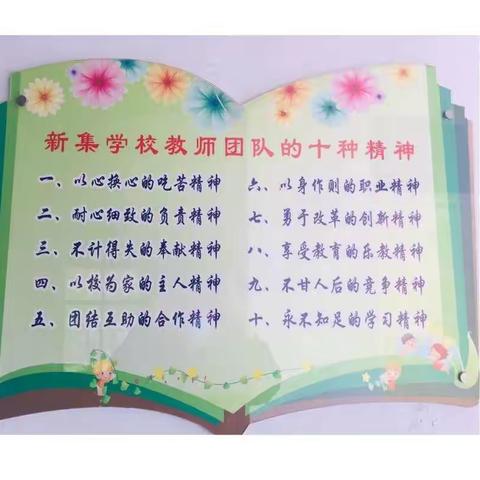 新集学校教师团队的十种精神
一、以心换心的吃苦精神
二、耐心细致的负责精神
三、不计得失的奉献精神
四、以校为家的主人精神
五、团结互助的合作精神
六、以身作则的职业精神
七、勇于改革的创新精神
八、享受教育的乐教精神
九、不甘人后的竞争精神
十、永不知足的学习精神